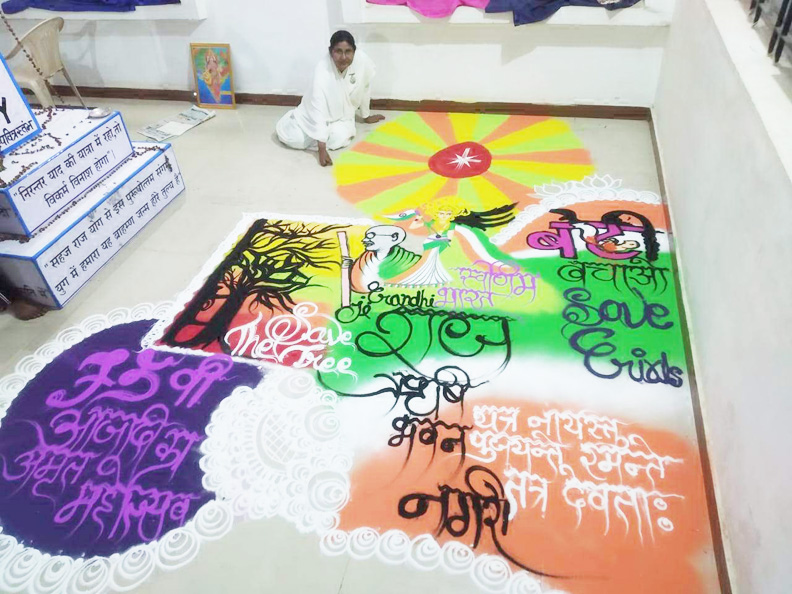 "निरन्तर याद की यात्रा में रहो, तो
विकर्म विनाश होगा"
"सहज राज योग से इस पुरूषोत्तम संगम
युग में हमारा यह ब्राह्मण जन्म हीरे तुल्य है"
बेटी
बचाओ
Save
Girls
स्वर्णिम
भारत
Gandhi
Je
Save
The Tree
राज
ऋषि
भवन
नगरी
यत्र नार्यस्तु
पुजयन्ते रमन्ते
तत्र देवताः
75 वी
आजादी का
अमृत
महोत्सव